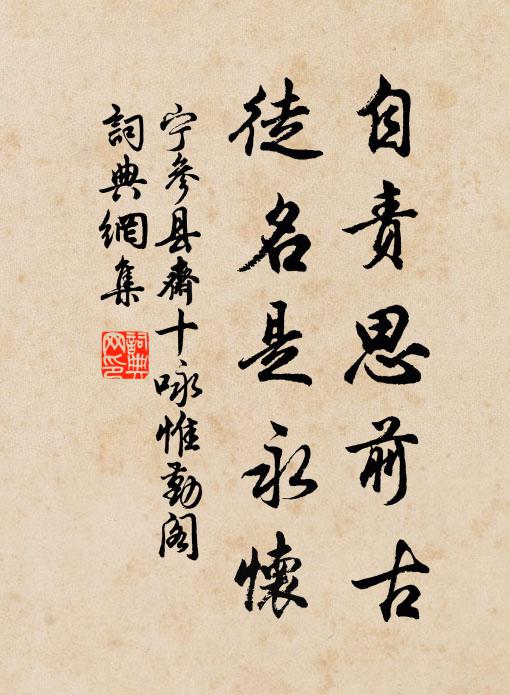 自责思前古
徒名是永懷
宁參县齋十咏惟勤阁
詞典網集
詞典網印